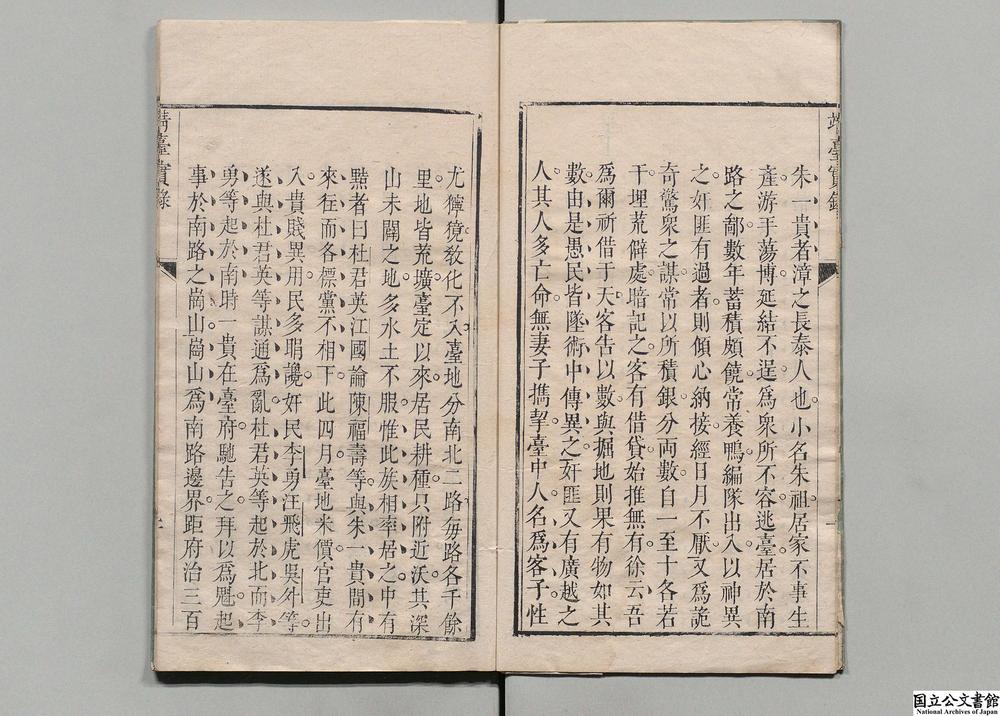 朱一貴者漳之長泰人也小名朱祖居家不事生
產游手蕩博延結不逞爲衆所不容逃臺居於南
路之鄰數年蓄積頗饒常養鴨編隊出入以神異
之奸匪有過者則傾心納接經日月不厭又爲詭
奇驚衆之謀常以所積銀分両數自一至十各若
干埋荒僻處暗記之客有借貸始推無有徐云吾
爲爾祈借于天客告以數與掘地則果有物如其
數由是愚民皆墜術中傳異之奸匪又有廣越之
人其人多亡命無妻子擕挈臺中人名爲客子性
尤獰獍敎化不入臺地分南北二路每路各千餘
里地皆荒壙臺定以來居民耕種只附近沃其深
山未闢之地多水土不服惟此族相率居之中有
黠者曰杜君英江國論陳福壽等與朱一貴間有
來徃而各標黨不相下此四月臺地米價官吏出
入貴賤異用民多琄讒奸民李勇汪飛虎吳外等
遂與杜君英等謀通爲亂杜君英等起於北而李
勇等起於南時一貴在臺府馳告之拜以爲魁起
事於南路之崗山崗山爲南路邊界距府治三百
靖臺實錄
靖臺實錄
国立公文書館
National Archives of Japan